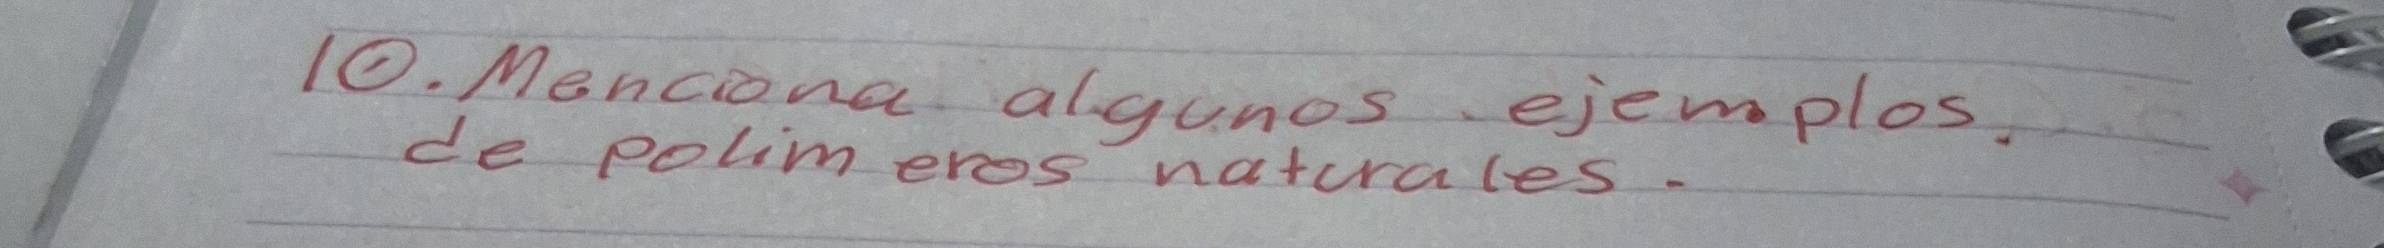 10. Menciona algunos ejemplos.
de polimeros naturales.